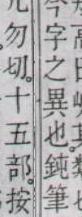 今字之異也鈍筆
勿切。十五部。按